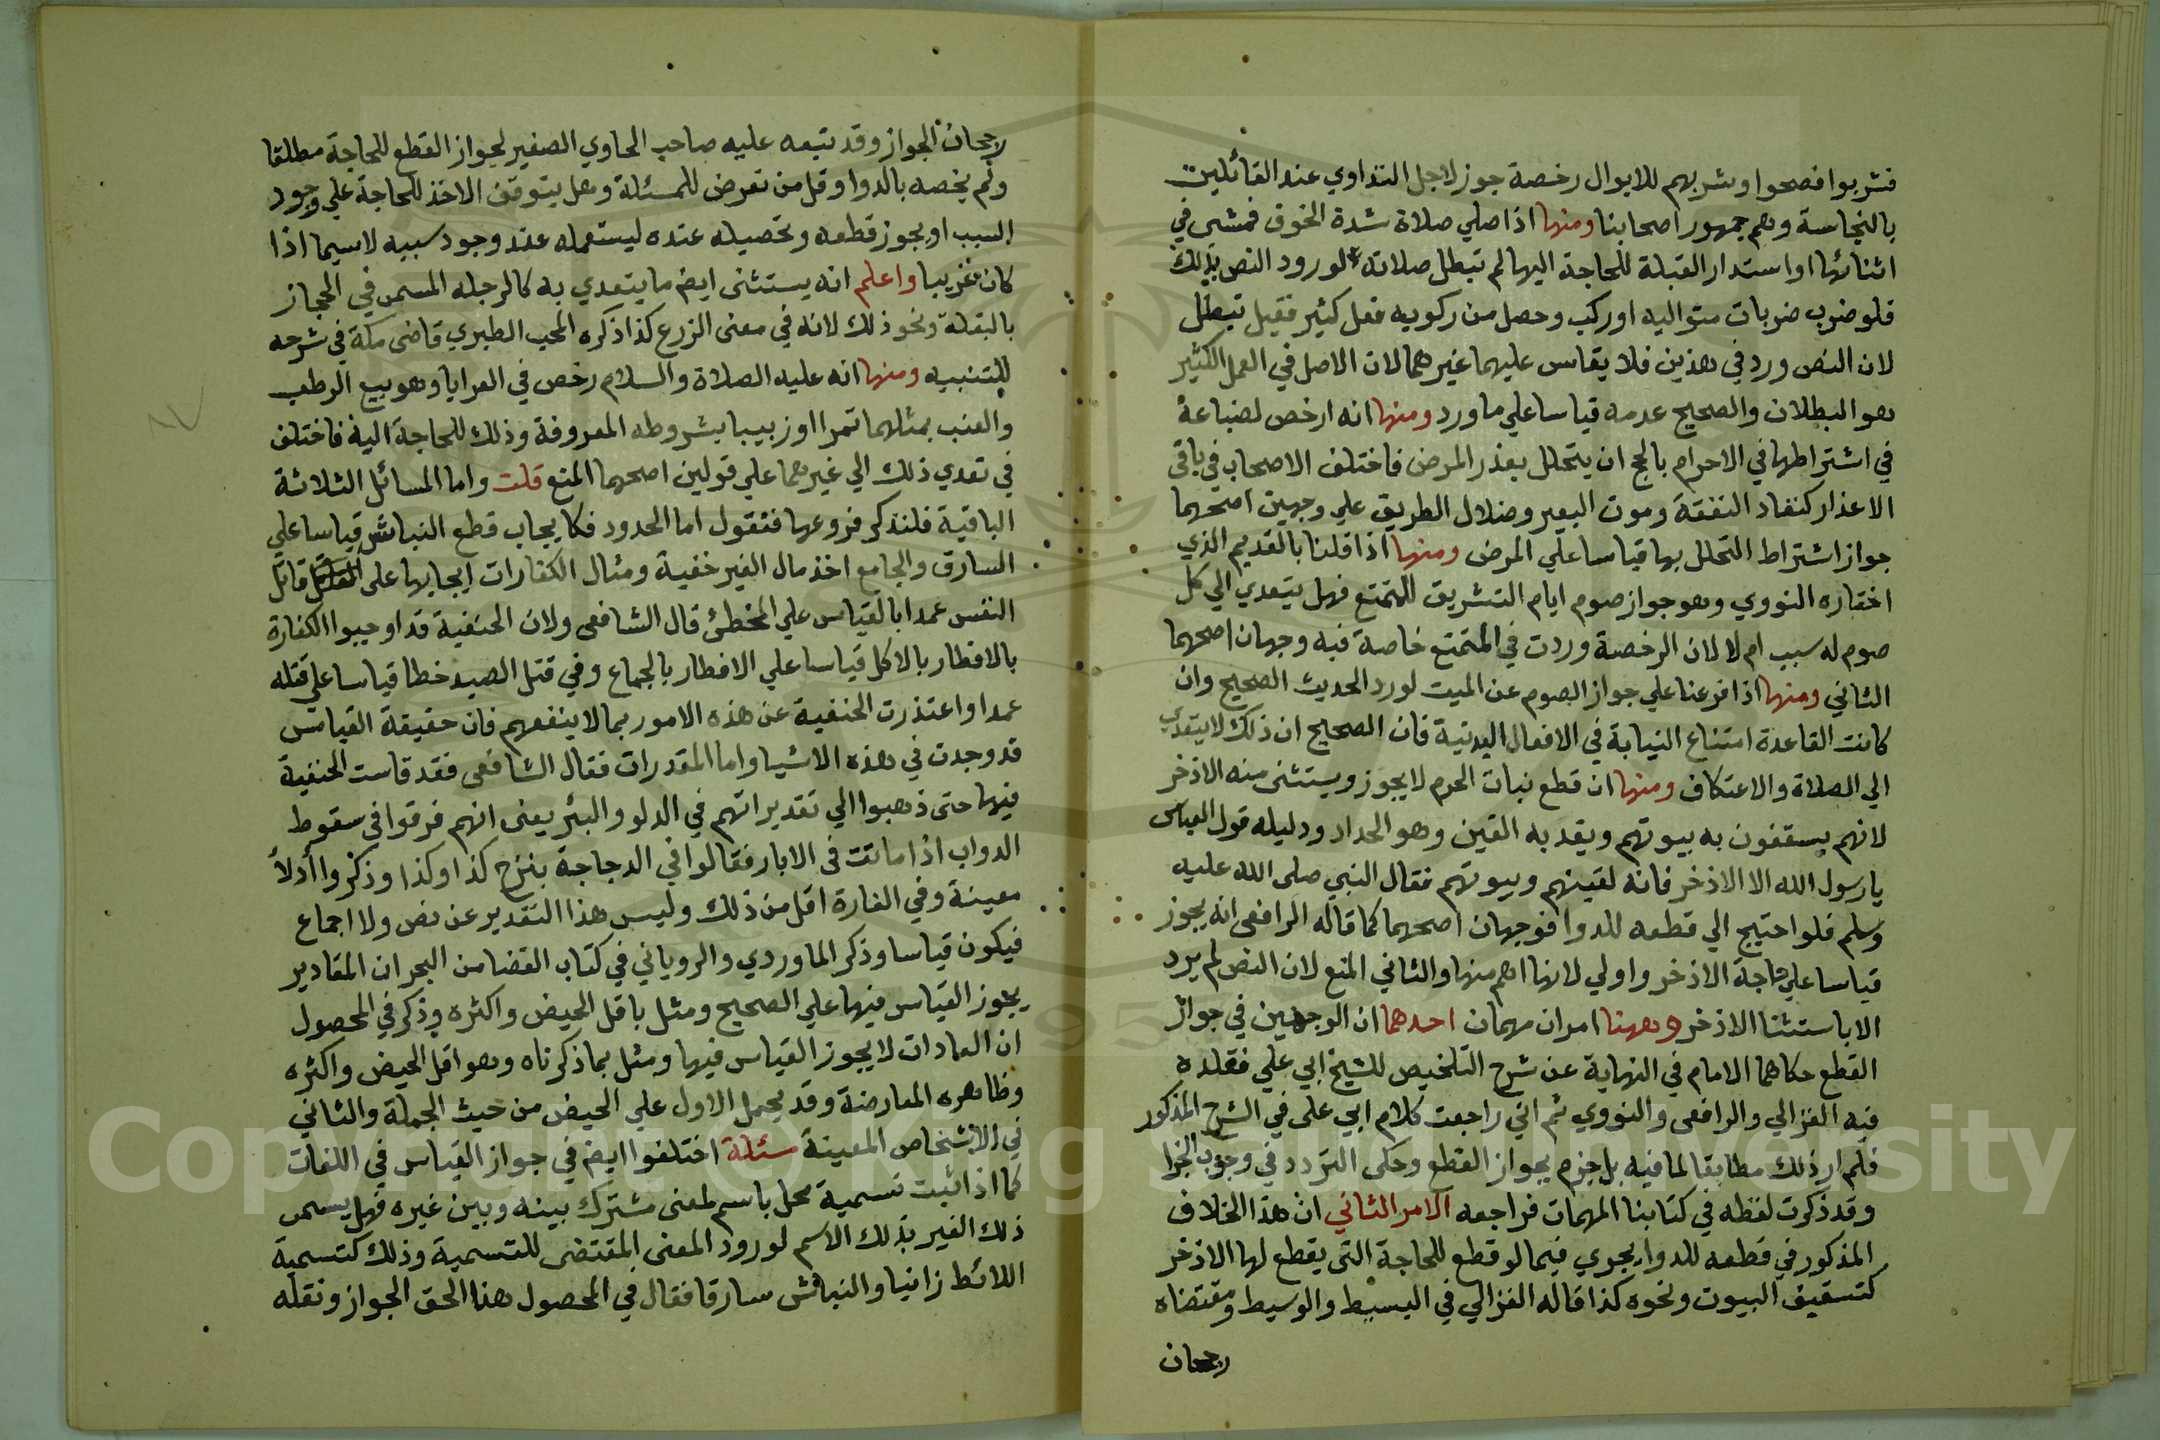 فشربوا فصحوا وشربهم للابوال رخصة جوز لاجل التداوي عند القائلين
بالنجاسة وهم جمهور اصحابنا ومنها اذا صلي صلاة شدة الخوف فمشى في
اثنائها او استدار القبلة للحاجة اليها لم تبطل صلاته لورود النص بذلك
فلو ضرب ضربات متواليه او ركب وحصل من ركوبه فعل كثير فقيل تبطل
لان النص ورد في هذين فلا يقاس عليهما غيرهما لان الاصل في العمل الكثير
هو البطلان والصحيح عدمه قياسا علي ما ورد ومنها انه ارخص لضباعة
في اشتراطها في الاحرام بالحج ان يتحلل بعذر المرض فاختلف الاصحاب في باقي
الاعذار كنفاد النفقة وموت البعير وضلال الطريق علي وجهين اصحهما
جواز اشتراط التحلل بها قياسا علي المرض ومنها اذا قلنا بالقديم الذي
اختاره النووي وهو جواز صوم ايام التشريق للمتمتع فهل يتعدي الي كل
صوم له سبب ام لا لان الرخصة وردت في المتمتع خاصة فيه وجهان اصحهما
الثاني ومنها اذا فرعنا علي جواز الصوم عن الميت لورد الحديث الصحيح وان
كانت القاعدة امتناع النيابة في الافعال البدنية فان الصحيح ان ذلك لا يتعدي
الي الصلاة والاعتكاف ومنها ان قطع نبات الحرم لا يجوز ويستثنى منه الاذخر
لانهم يسقفون به بيوتهم ويقد به القين وهو الحداد ودليله قول العباس
يا رسول الله الا الاذخر فانه لقينهم وبيوتهم فقال النبي صلى الله عليه
وسلم فلو احتيج الي قطعه للدوا فوجهان اصحهما كما قاله الرافعي انه يجوز
قياسا علي حاجة الاذخر واولي لانها اهم منها والثاني المنع لان النص لم يرد
الا باستثنا الاذخر وههنا امران مهمان احدهما ان الوجهين في جواز
القطع حكاهما الامام في النهاية عن شرح التلخيص للشيخ ابي علي فقلده
فيه الغزالي والرافعي والنووي ثم اني راجعت كلام ابي علي في الشرح المذكور
فلم ار ذلك مطابقا لما فيه بل جزم بجواز القطع وحكى التردد في وجوب الجزا
وقد ذكرت لفظه في كتابنا المهمات فراجعه الامر الثاني ان هذا الخلاف
المذكور في قطعه للدوا يجري فيما لو قطع للحاجة التي يقطع لها الاذخر
كتسقيف البيوت ونحوه كذا قاله الغزالي في البسيط والوسيط ومقتضاه
رجحان
رجحان الجواز وقد تبعه عليه صاحب الحاوي الصغير لجواز القطع للحاجة مطلقا
ولم يخصه بالدوا وقل من تعرض للمسئلة وهل يتوقف الاخذ للحاجة علي وجود
السبب او يجوز قطعه وتحصيله عنده ليستعمله عند وجود سببه لا سيما اذا
كان غريبا واعلم انه يستثنى ايضا ما يتعدي به كالرجله المسمى في الحجاز
بالبقلة ونحو ذلك لانه في معنى الزرع كذا ذكره المحب الطبري قاضي مكة في شرحه
للتنبيه ومنها انه عليه الصلاة والسلام رخص في العرايا وهو بيع الرطب
والعنب بمثلهما تمرا او زبيبا بشروطه المعروفة وذلك للحاجة اليه فاختلف
في تعدي ذلك الي غيرهما علي قولين اصحهما المنع قلت واما المسائل الثلاثة
الباقية فلنذكر فروعها فنقول اما الحدود فكايجاب قطع النباش قياسا علي
السارق والجامع اخذ مال الغير خفية ومثال الكفارات ايجابها على قاتل
النفس عمدا بالقياس علي المخطئ قال الشافعي ولان الحنفية قد اوجبوا الكفارة
بالافطار بالاكل قياسا علي الافطار بالجماع وفي قتل الصيد خطا قياسا علي قتله
عمدا واعتذرت الحنفية عن هذه الامور بما لا ينفعهم فان حقيقة القياس
قد وجدت في هذه الاشيا واما المقدرات فقال الشافعي فقد قاست الحنفية
فيها حتى ذهبوا الي تقديراتهم في الدلو والبئر يعنى انهم فرقوا في سقوط
الدواب اذا ماتت في الابار فقالوا في الدجاجة ينزح كذا وكذا وذكروا أدلاً
معينة وفي الفارة اقل من ذلك وليس هذا التقدير عن نص ولا اجماع
فيكون قياسا وذكر الماوردي والروياني في كتاب القضا من البحر ان المقادير
يجوز القياس فيها علي الصحيح ومثل باقل الحيض واكثره وذكر في المحصول
ان العادات لا يجوز القياس فيها ومثل بما ذكرناه وهو اقل الحيض واكثره
وظاهره المعارضة وقد يحمل الاول علي الحيض من حيث الجملة والثاني
في الاشخاص المعينة مسئلة اختلفوا ايضا في جواز القياس في اللغات
كما اذا ثبت تسمية محل باسم لمعنى مشترك بينه وبين غيره فهل يسمى
ذلك الغير بذلك الاسم لورود المعنى المقتضى للتسمية وذلك كتسمية
اللائط زانيا والنباش سارقا فقال في المحصول هذا الحق الجواز ونقله
Copyright © King Saud University